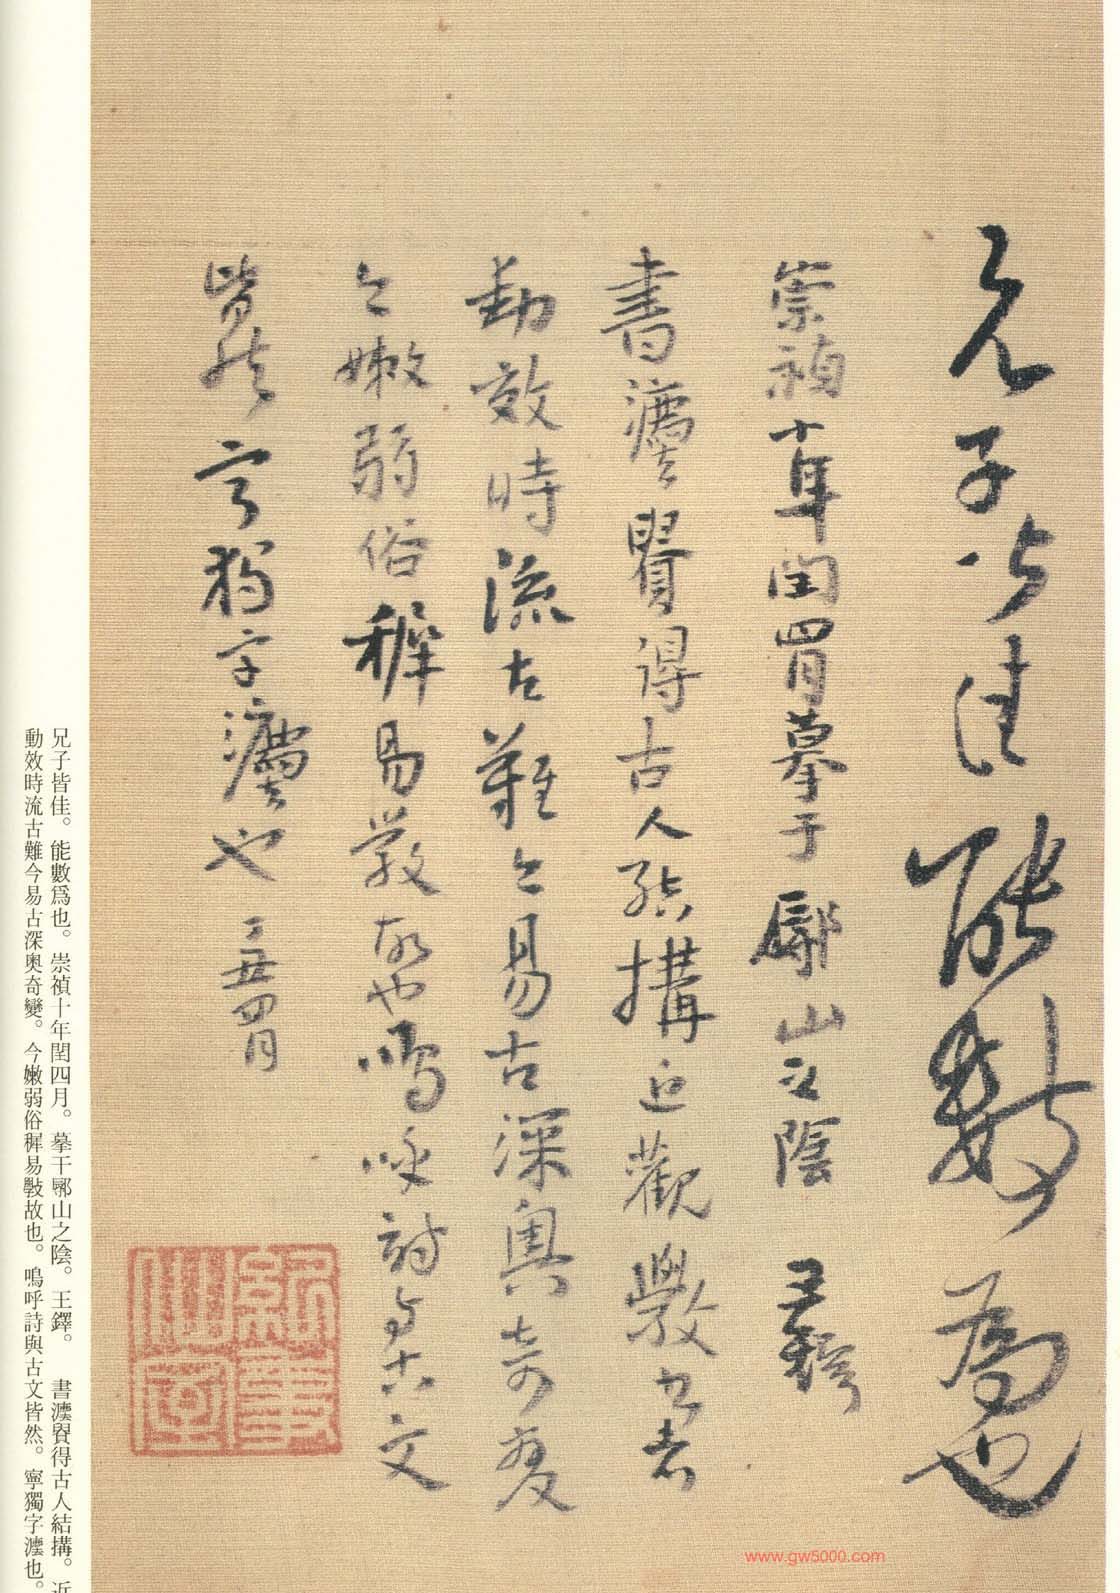 兄子皆佳能數為也
崇禎十年閏四月摹于鄏山之陰 王鐸
書灋貴得古人結構近觀學書者
動效時流古難今易古深奧奇變
今嫩弱俗稺易學故也嗚呼詩與古文
皆然寧獨字灋也 丁丑四月
兄子皆佳。能數爲也。崇禎十年閏四月。摹于鄏山之陰。王鐸。　書灋貴得古人結構。近
動效時流古難今易古深奧奇變。今嫩弱俗稺易斅故也。嗚呼詩與古文皆然。寧獨字灋也。
www.gw5000.com